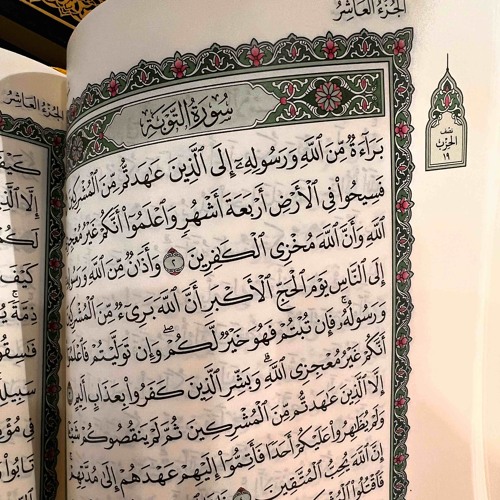 الجزء العاشر
سورة التوبة
نصف
الحزب
١٩
بَرَآءَةٌ مِّنَ ٱللَّهِ وَرَسُولِهِۦٓ إِلَى ٱلَّذِينَ عَٰهَدتُّم مِّنَ ٱلْمُشْرِكِينَ
فَسِيحُوا۟ فِى ٱلْأَرْضِ أَرْبَعَةَ أَشْهُرٍ وَٱعْلَمُوٓا۟ أَنَّكُمْ غَيْرُ مُعْجِزِى
ٱللَّهِ وَأَنَّ ٱللَّهَ مُخْزِى ٱلْكَٰفِرِينَ ٢ وَأَذَٰنٌ مِّنَ ٱللَّهِ وَرَسُولِهِۦٓ
إِلَى ٱلنَّاسِ يَوْمَ ٱلْحَجِّ ٱلْأَكْبَرِ أَنَّ ٱللَّهَ بَرِىٓءٌ مِّنَ ٱلْمُشْرِكِينَ
وَرَسُولُهُۥ فَإِن تُبْتُمْ فَهُوَ خَيْرٌ لَّكُمْ ۖ وَإِن تَوَلَّيْتُمْ فَٱعْلَمُوٓا۟
أَنَّكُمْ غَيْرُ مُعْجِزِى ٱللَّهِ ۗ وَبَشِّرِ ٱلَّذِينَ كَفَرُوا۟ بِعَذَابٍ أَلِيمٍ
إِلَّا ٱلَّذِينَ عَٰهَدتُّم مِّنَ ٱلْمُشْرِكِينَ ثُمَّ لَمْ يَنقُصُوكُمْ شَيْـًٔا
وَلَمْ يُظَٰهِرُوا۟ عَلَيْكُمْ أَحَدًا فَأَتِمُّوٓا۟ إِلَيْهِمْ عَهْدَهُمْ إِلَىٰ مُدَّتِهِمْ
إِنَّ ٱللَّهَ يُحِبُّ ٱلْمُتَّقِينَ
فَٱقْتُلُوا۟
الجزء العاشر
كيف
إلا الذين
لكم
كيف
ذمة
فسقون
سبيله
في مؤمن
تابوا